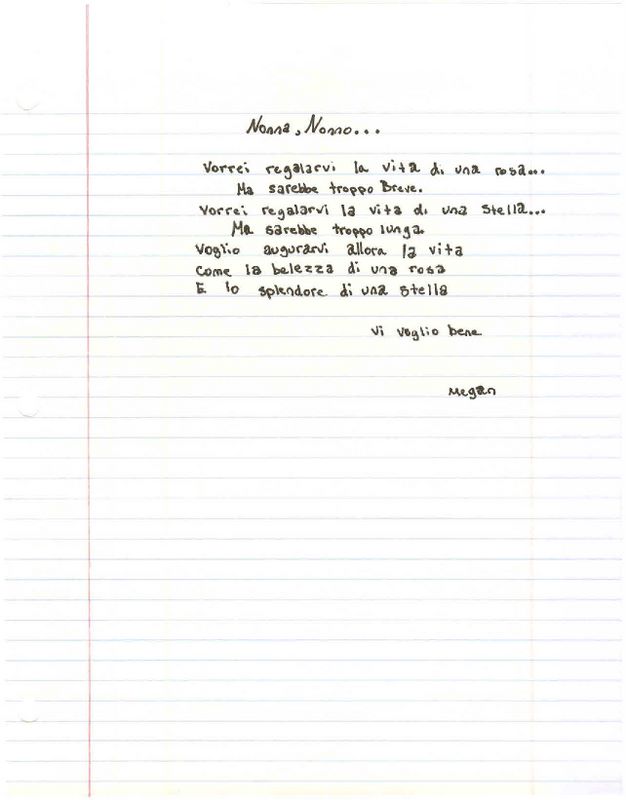 Nonna, Nonno...
Vorrei regalarvi la vita di una rosa...
Ma sarebbe troppo Breve.
Vorrei regalarvi la vita di una stella...
Ma sarebbe troppo lunga.
Voglio augurarvi allora la vita
Come la belezza di una rosa
E lo splendore di una stella
Vi voglio bene
Megan